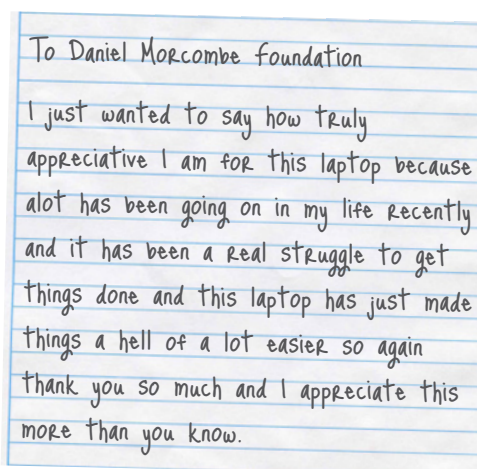 To Daniel Morcombe foundation
I just wanted to say how truly
appreciative I am for this laptop because
alot has been going on in my life recently
and it has been a real struggle to get
things done and this laptop has just made
things a hell of a lot easier so again
thank you so much and I appreciate this
more than you know.